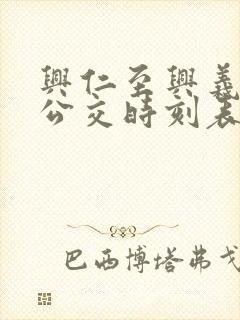 興仁至興義
公交時刻表
巴西博塔弗戈